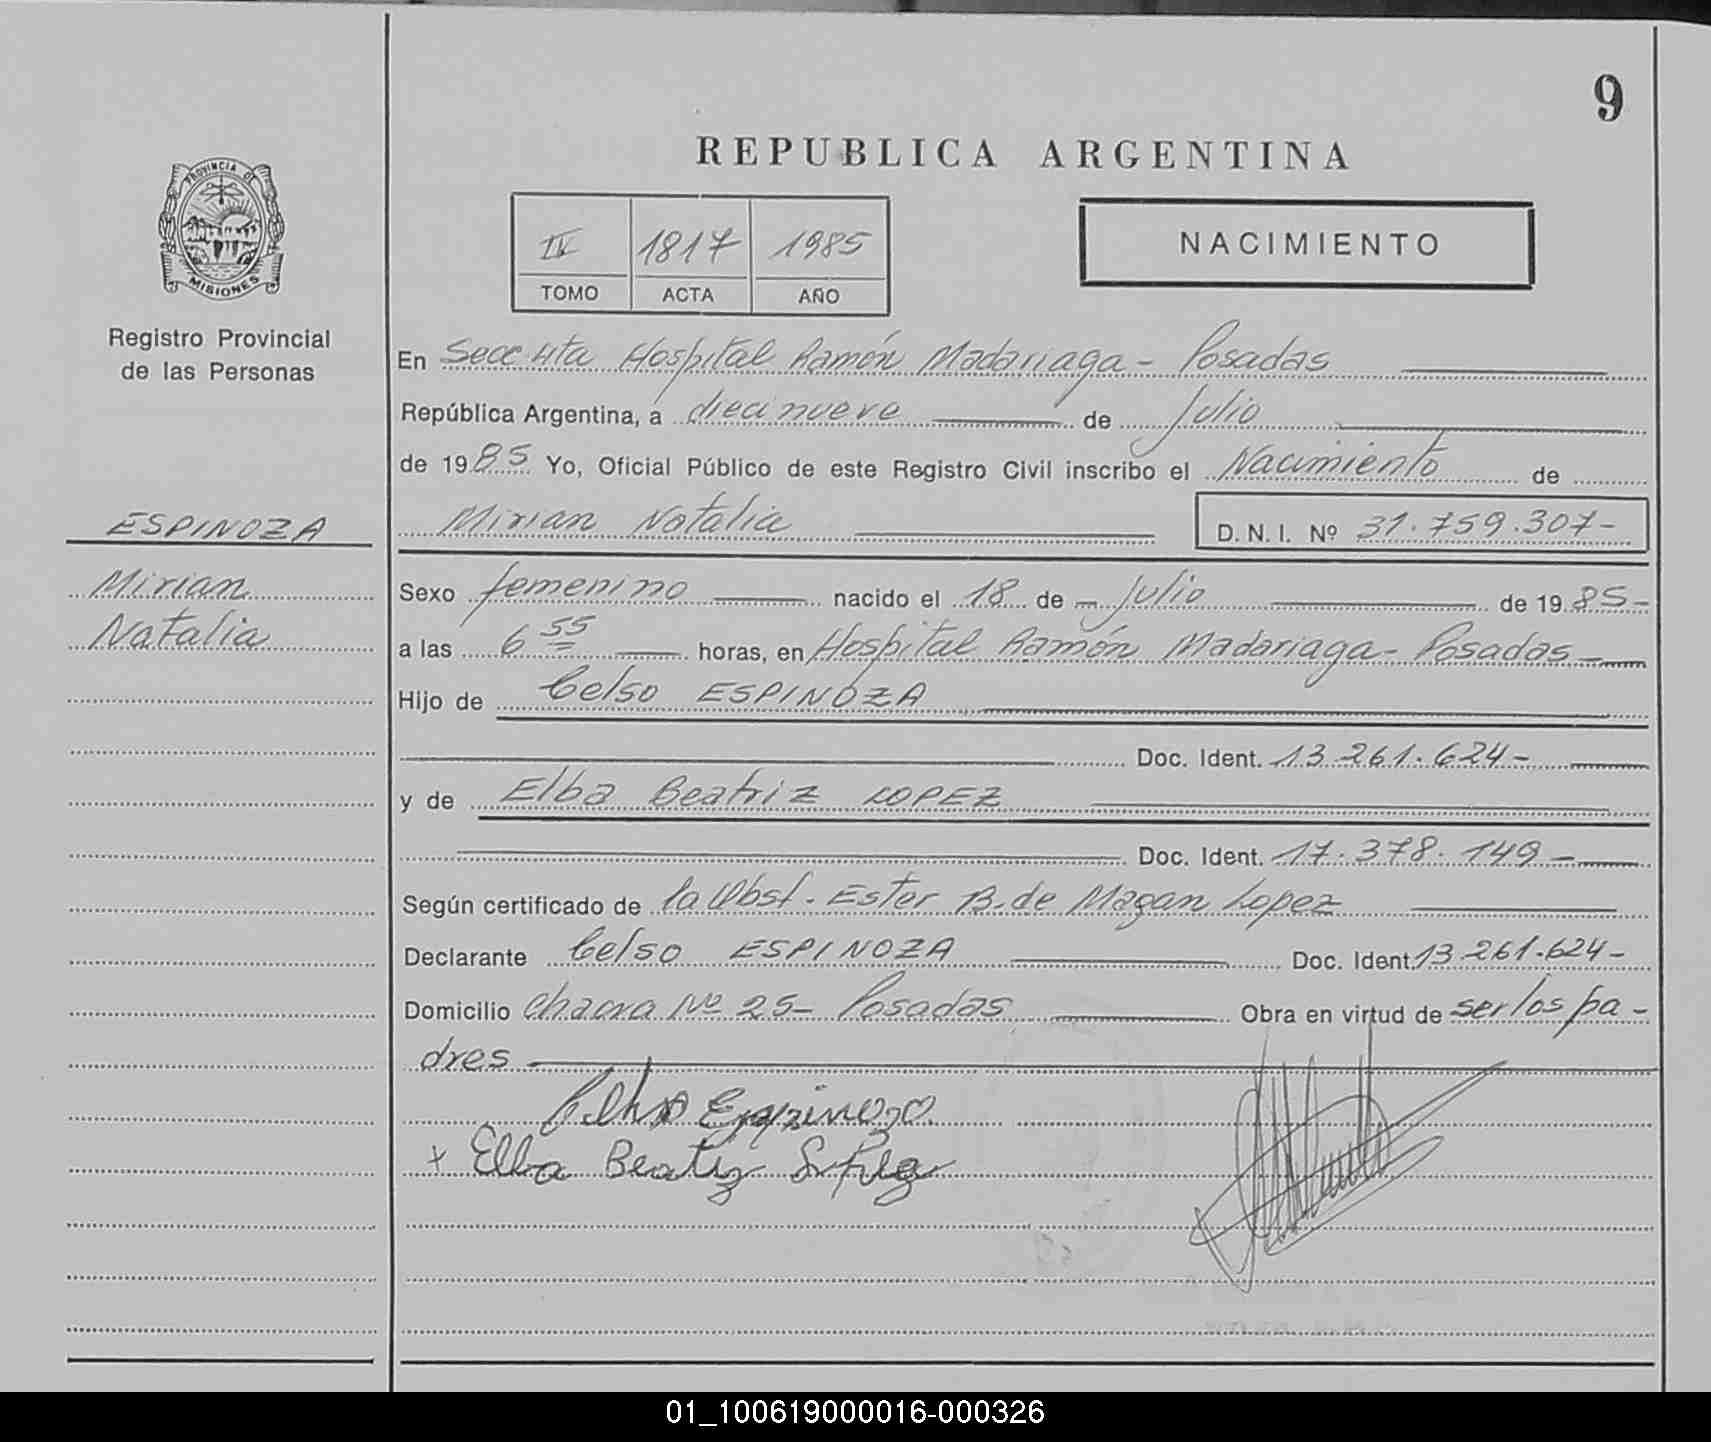 9
REPUBLICA ARGENTINA
PROVINCIA DE
MISIONES
Registro Provincial
de las Personas
IV 1817 1985
TOMO ACTA AÑO
NACIMIENTO
En Secc 4ta Hospital Ramón Madariaga - Posadas
República Argentina, a diecinueve de Julio
de 1985 Yo, Oficial Público de este Registro Civil inscribo el Nacimiento de
ESPINOZA
Mirian Natalia D. N. I. Nº 31.759.307-
Mirian
Sexo femenino nacido el 18 de Julio de 1985-
Natalia
a las 6 55 horas, en Hospital Ramón Madariaga - Posadas
Hijo de Celso ESPINOZA
Doc. Ident. 13.261.624-
y de Elba Beatriz LOPEZ
Doc. Ident. 17.378.149-
Según certificado de la Obst. Ester B. de Magan Lopez
Declarante Celso ESPINOZA Doc. Ident. 13.261.624-
Domicilio Chacra Nº 25- Posadas Obra en virtud de ser los pa-
dres
Celso Espinozo
+ Elba Beatriz
01_100619000016-000326